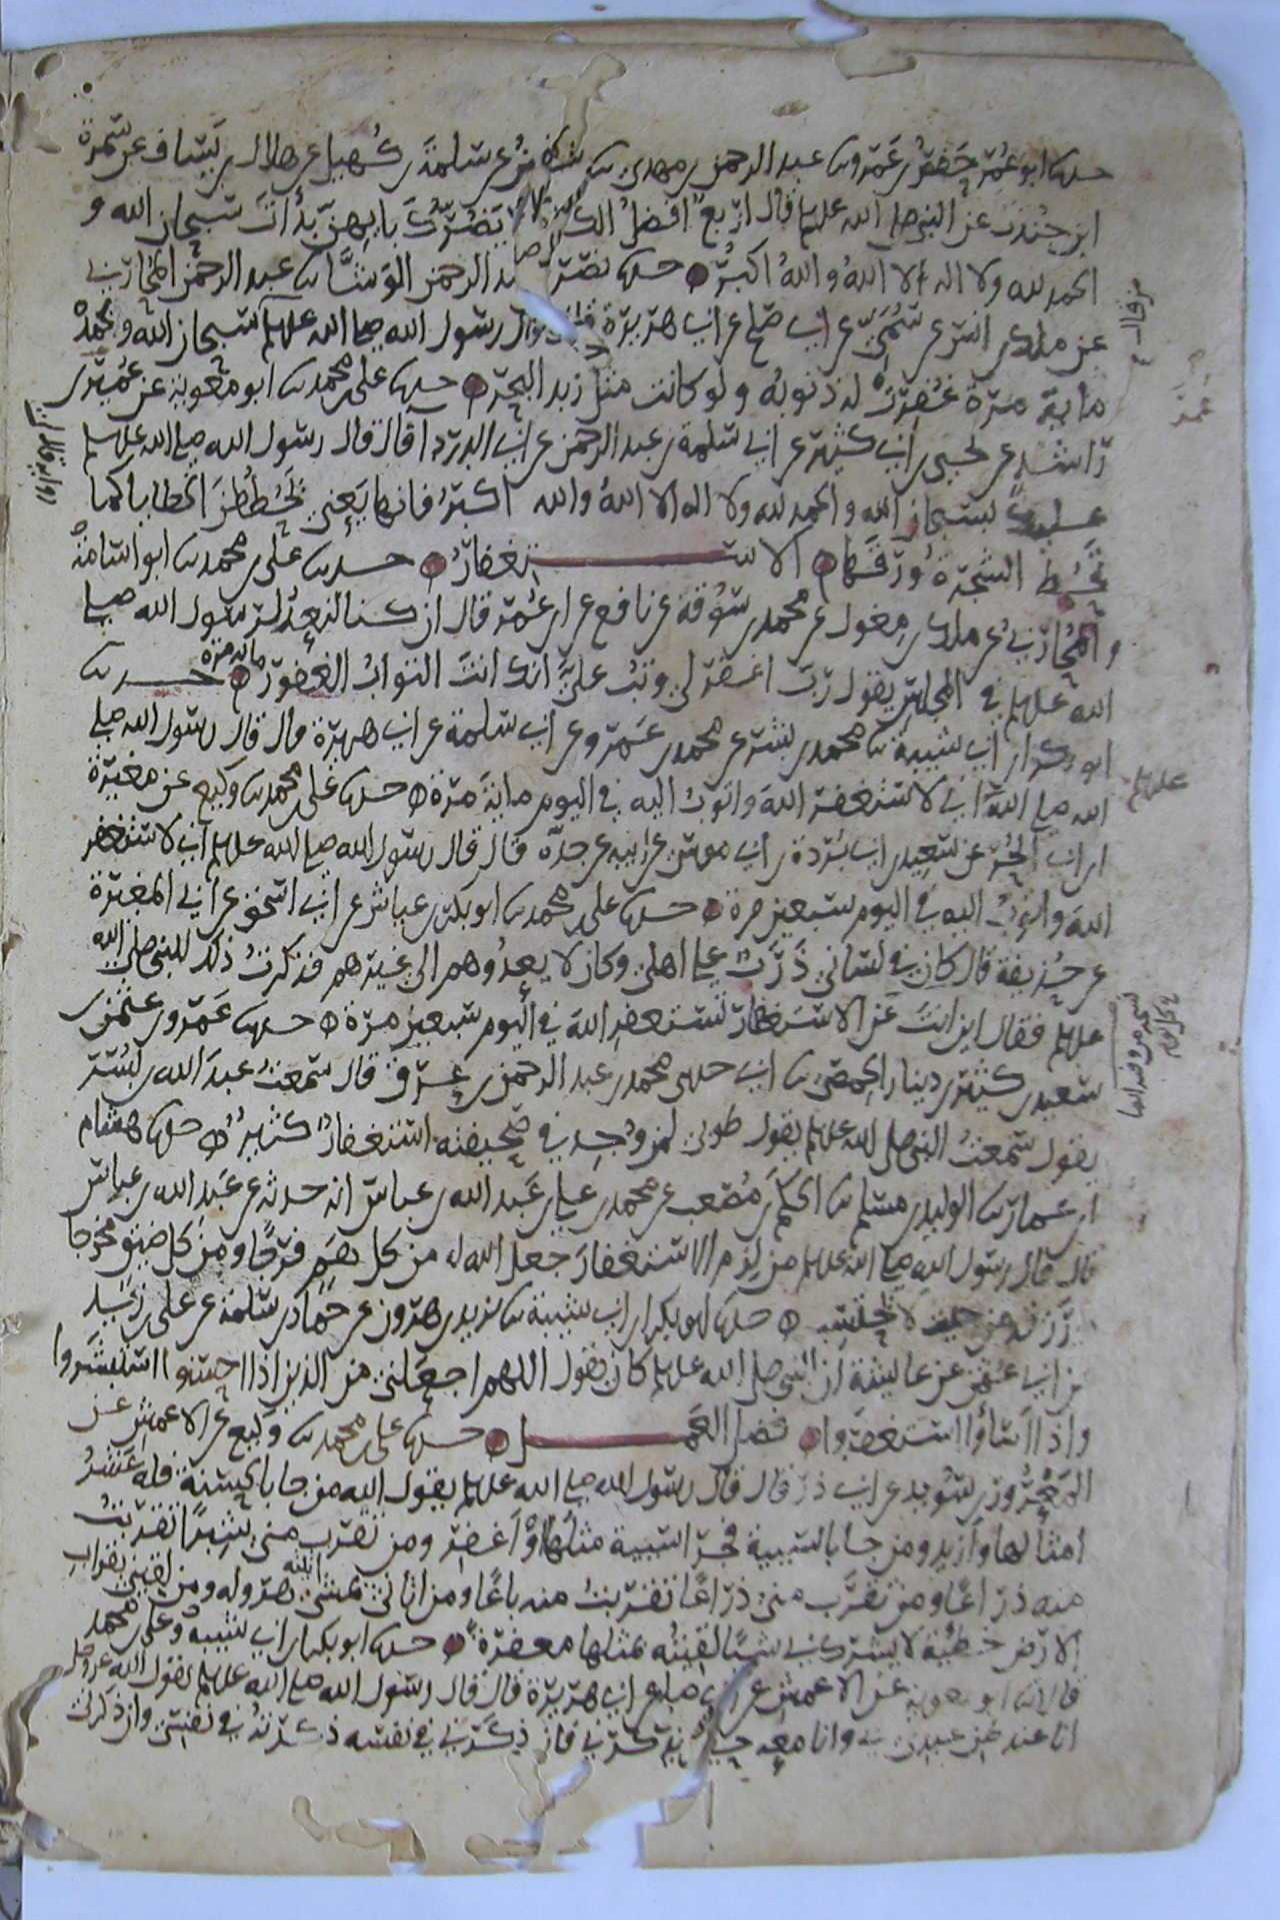 حدثنا ابو عمر حفص بن عمرو ثنا عبد الرحمن بن مهدي ثنا سفين عن سلمة بن كهيل عن هلال بن يساف عن سمرة
ابن جندب عن النبي صلى الله عليه وسلم قال اربع افضل الكلام لا يضرك بايهن بدات سبحان الله و
الحمد لله ولا اله الا الله والله اكبر حدثنا نصر بن عبد الرحمن الوشا ثنا عبد الرحمن المحاربي
عن ملك بن انس عن سمي عن ابي صلح عن ابي هريرة قال قال رسول الله صلى الله عليه وسلم سبحان الله وبحمده
ماية مرة غفرت له ذنوبه ولو كانت مثل زبد البحر حدثنا علي بن محمد ثنا ابو معوية عن عمر بن
راشد عن يحيى بن ابي كثير عن ابي سلمة بن عبد الرحمن عن ابي الدرداء قال قال رسول الله صلى الله عليه وسلم
عليك بسبحان الله والحمد لله ولا اله الا الله والله اكبر فانها يعني تحططن الخطايا كما
تحط الشجرة ورقها الاستغفار حدثنا علي بن محمد ثنا ابو اسامة
والمحاربي عن ملك بن مغول عن محمد بن سوقة عن نافع عن ابن عمر قال ان كنا لنعد لرسول الله صلى
الله عليه وسلم في المجلس يقول رب اغفر لي وتب علي انك انت التواب الغفور ماية مرة حدثنا
ابو بكر بن ابي شيبة ثنا محمد بن بشر عن محمد بن عمرو عن ابي سلمة عن ابي هريرة قال قال رسول الله صلى
الله صلى الله اني لاستغفر الله واتوب اليه في اليوم ماية مرة حدثنا علي بن محمد ثنا وكيع عن مغيرة
ابن ابي الحر عن سعيد بن ابي بردة بن ابي موسى عن ابيه عن جده قال قال رسول الله صلى الله عليه وسلم اني لاستغفر
الله واتوب اليه في اليوم سبعين مرة حدثنا علي بن محمد ثنا ابو بكر بن عياش عن ابي اسحق عن ابي المغيرة
عن حذيفة قال كان في لساني ذرب على اهلي وكان لا يعدوهم الى غيرهم فذكرت ذلك للنبي صلى الله
عليه وسلم فقال اين انت عن الاستغفار تستغفر الله في اليوم سبعين مرة حدثنا عمرو بن عثمن بن
سعيد بن كثير بن دينار الحمصي ثنا ابي حدثني محمد بن عبد الرحمن بن عرق قال سمعت عبد الله بن بسر
يقول سمعت النبي صلى الله عليه وسلم يقول طوبى لمن وجد في صحيفته استغفار كثير حدثنا هشام
ابن عمار ثنا الوليد بن مسلم ثنا الحكم بن مصعب عن محمد بن علي بن عبد الله بن عباس انه حدثه عن عبد الله بن عباس
قال قال رسول الله صلى الله عليه وسلم من لزم الاستغفار جعل الله له من كل هم فرجا ومن كل ضيق مخرجا
ورزقه من حيث لا يحتسب حدثنا ابو بكر بن ابي شيبة ثنا يزيد بن هرون عن حماد بن سلمة عن علي بن زيد
عن ابي عثمن عن عايشة ان النبي صلى الله عليه وسلم كان يقول اللهم اجعلني من الذين اذا احسنوا استبشروا
واذا اساؤا استغفروا فضل العمل حدثنا علي بن محمد ثنا وكيع عن الاعمش عن
المعرور بن سويد عن ابي ذر قال قال رسول الله صلى الله عليه وسلم يقول الله من جا بالحسنة فله عشر
امثالها وازيد ومن جا بالسيية فجزا السيية مثلها او اغفر ومن تقرب مني شبرا تقربت
منه ذراعا ومن تقرب مني ذراعا تقربت منه باعا ومن اتاني يمشي اتيته هرولة ومن لقيني بقراب
الارض خطية لا يشرك بي شيا لقيته بمثلها مغفرة حدثنا ابو بكر بن ابي شيبة وعلي بن محمد
قالا ثنا ابو معوية عن الاعمش عن ابي صلح عن ابي هريرة قال قال رسول الله صلى الله عليه وسلم يقول الله عز وجل
انا عند ظن عبدي بي وانا معه حين يذكرني فان ذكرني في نفسه ذكرته في نفسي وان ذكرني